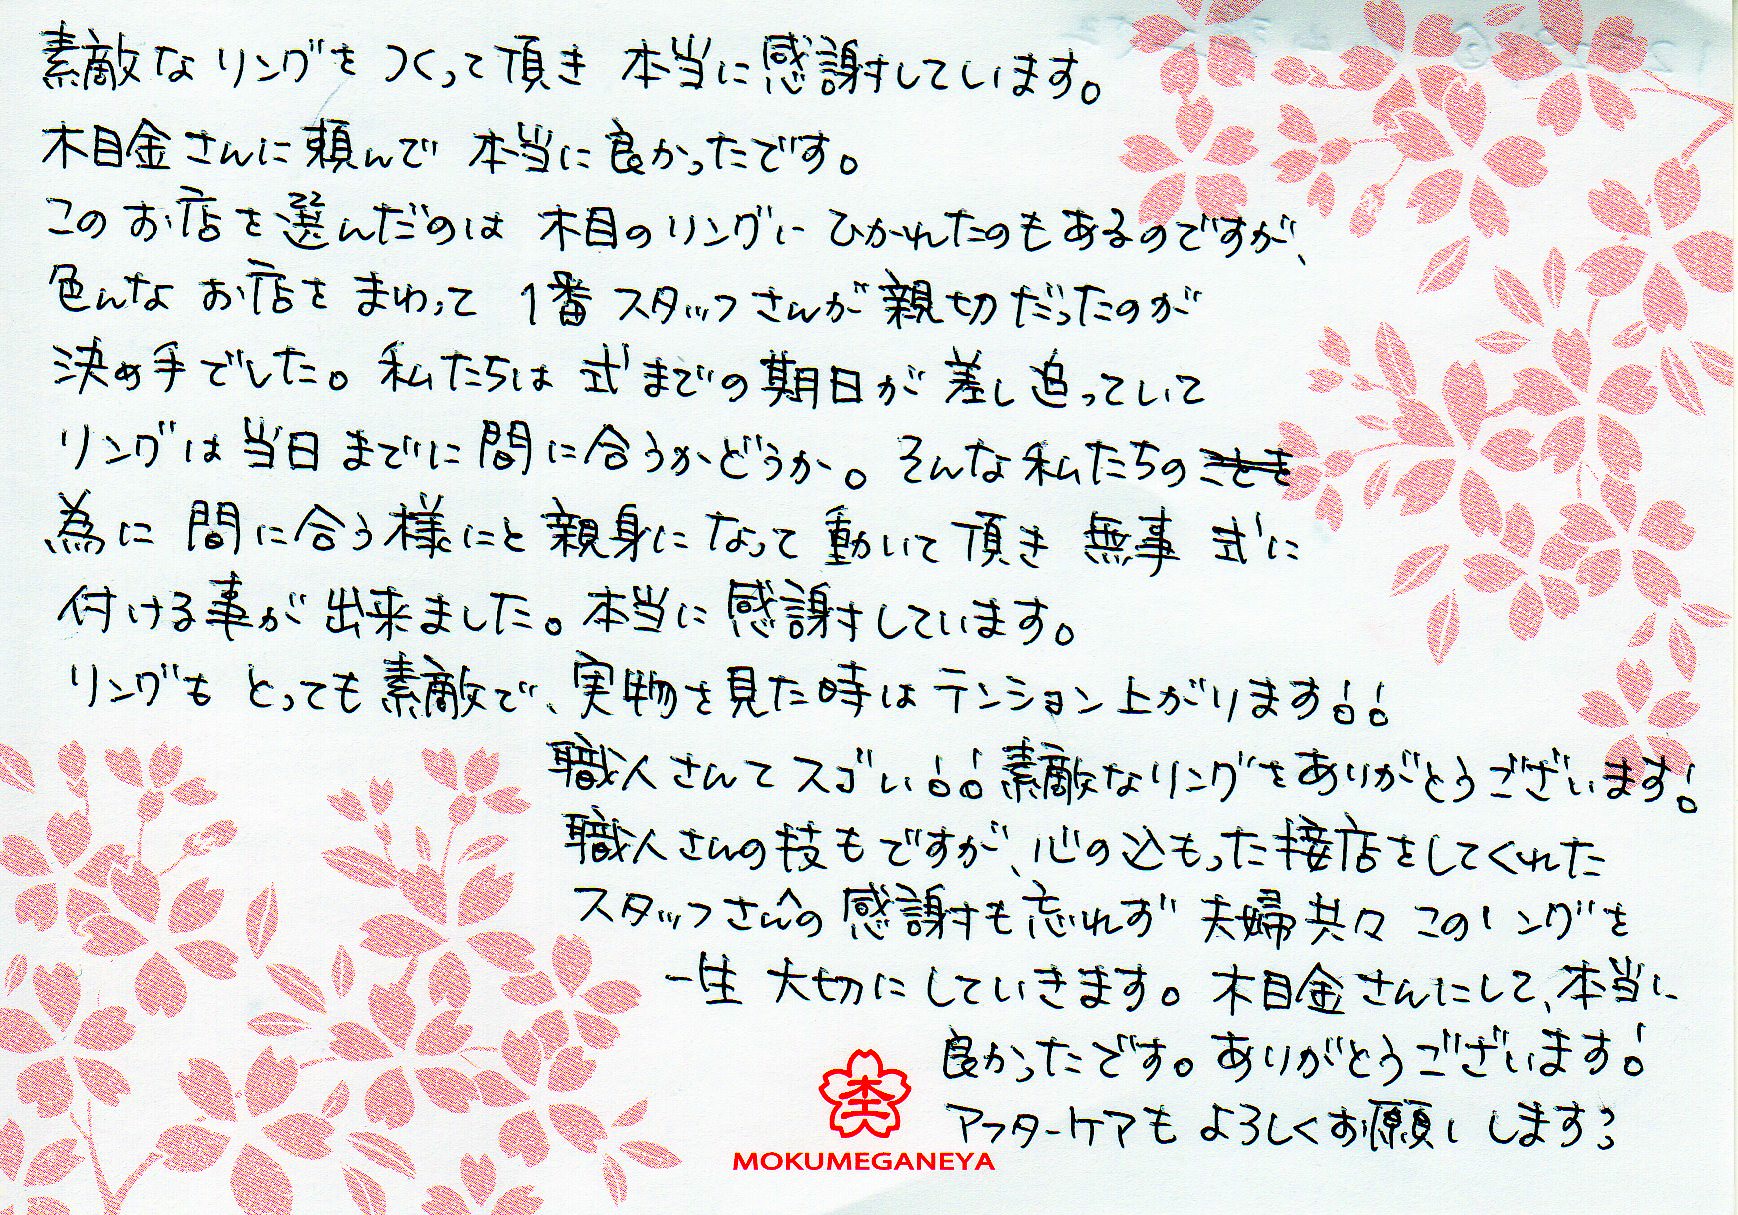 素敵なリングをつくって頂き 本当に感謝しています。
木目金さんに頼んで 本当に良かったです。
このお店を選んだのは 木目のリングに ひかれたのもあるのですが、
色んな お店を まわって 1番 スタッフさんが親切だったのが
決め手でした。私たちは 式までの期日が 差し迫っていて
リングは当日までに間に合うかどうか。そんな私たちの
為に 間に合う様にと 親身になって 動いて 頂き 無事 式に
付ける事が 出来ました。本当に 感謝しています。
リングも とっても素敵で、実物を見た時は テンション上がります!!
職人さんて スゴい!! 素敵なリングをありがとうございます!
職人さんの技もですが、心の込もった接店をしてくれた
スタッフさんへの 感謝も忘れず 夫婦共々 このリングを
一生 大切にしていきます。木目金さんにして、本当に
良かったです。ありがとうございます!
アフターケアも よろしくお願いします
MOKUMEGANEYA